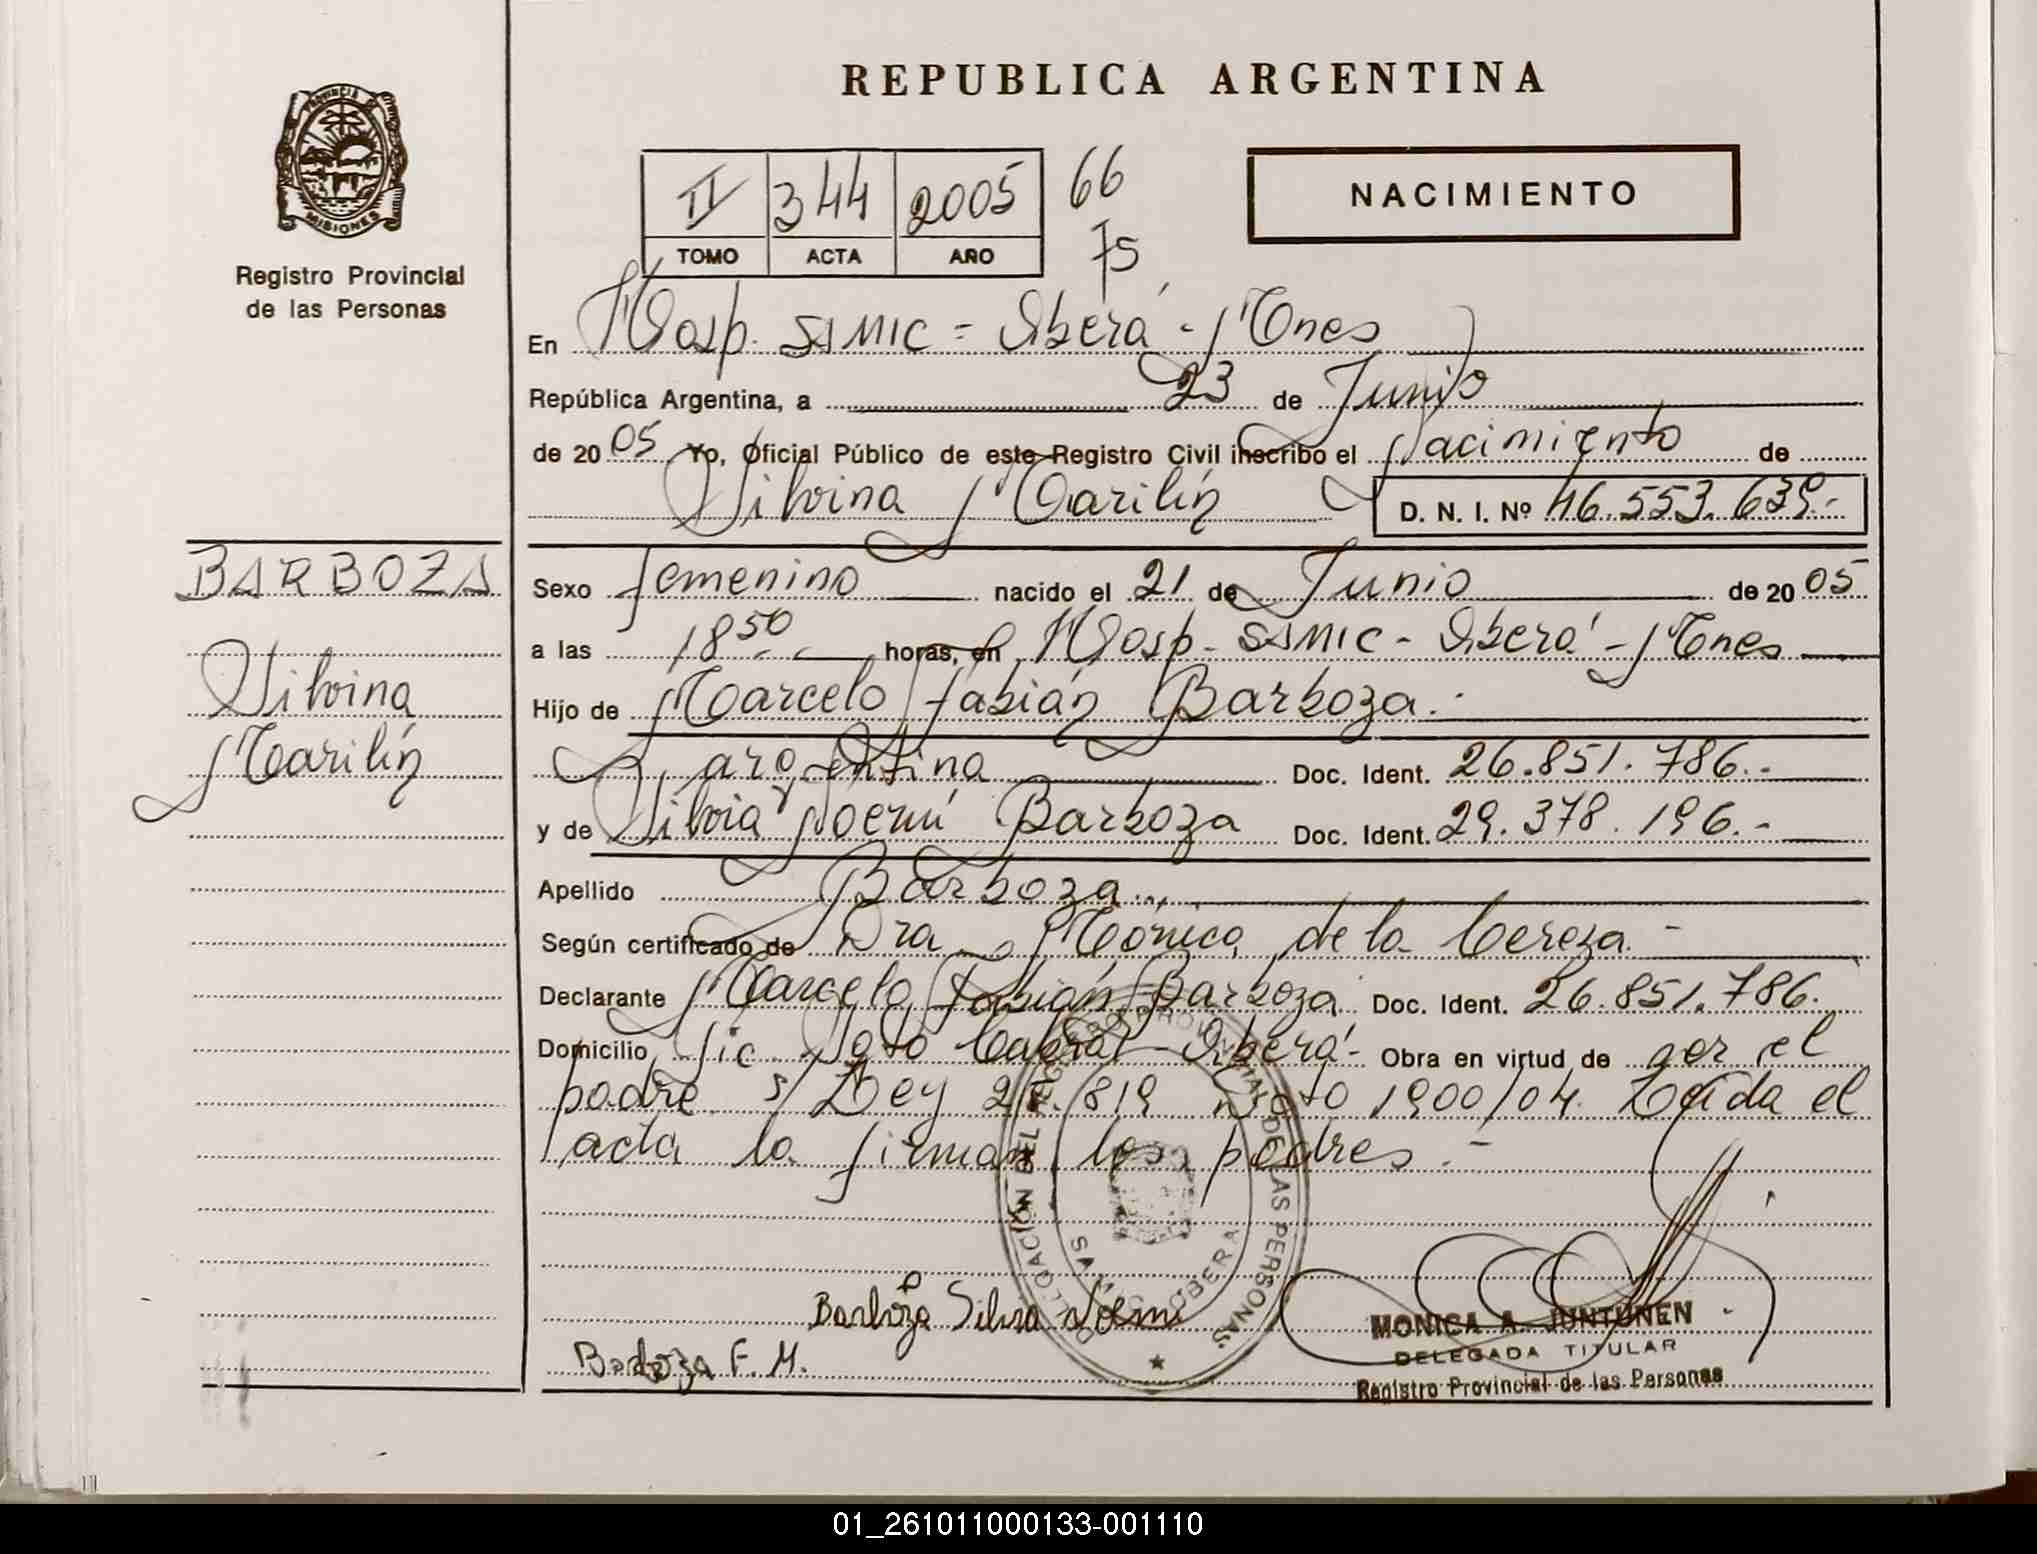 REPUBLICA ARGENTINA
PROVINCIA DE
MISIONES
Registro Provincial
de las Personas
II 344 2005 66
TOMO ACTA AÑO 75
NACIMIENTO
En Hosp. SAMIC = Oberá - Mnes
República Argentina, a 23 de Junio
de 20 05 Yo, Oficial Público de este Registro Civil inscribo el Nacimiento de
Silvina Marilín D. N. I. Nº 46.553.639.-
BARBOZA
Silvina
Marilín
Sexo femenino nacido el 21 de Junio de 20 05
a las 18 50 horas, en Hosp - SAMIC - Oberá - Mnes
Hijo de Marcelo Fabián Barboza.-
argentina Doc. Ident. 26.851.786.-
y de Silvia Noemí Barboza Doc. Ident. 29.378.196.-
Apellido Barboza
Según certificado de Dra. Mónica de la Cereza.-
Declarante Marcelo Fabián Barboza Doc. Ident. 26.851.786.
Domicilio Sgto Cabral - Oberá - Obra en virtud de ser el
padre s/ Ley Dcto 1900/04. Leída el
acta la firman los padres.-
DELEGACION DEL REGISTRO PROVINCIAL DE LAS PERSONAS
OBERA
Barboza Silvia Noemi
Barboza F. M.
MONICA A. JUNTUNEN
DELEGADA TITULAR
Registro Provincial de las Personas
01_261011000133-001110